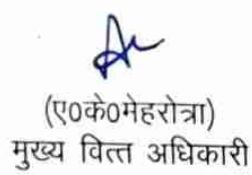 (ए०के०मेहरोत्रा)
मुख्य वित्त अधिकारी